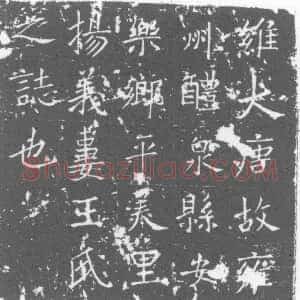 維大唐故雍
州醴泉縣安
樂鄉平美里
揚義妻王氏
之誌也
Shufaziliao.com